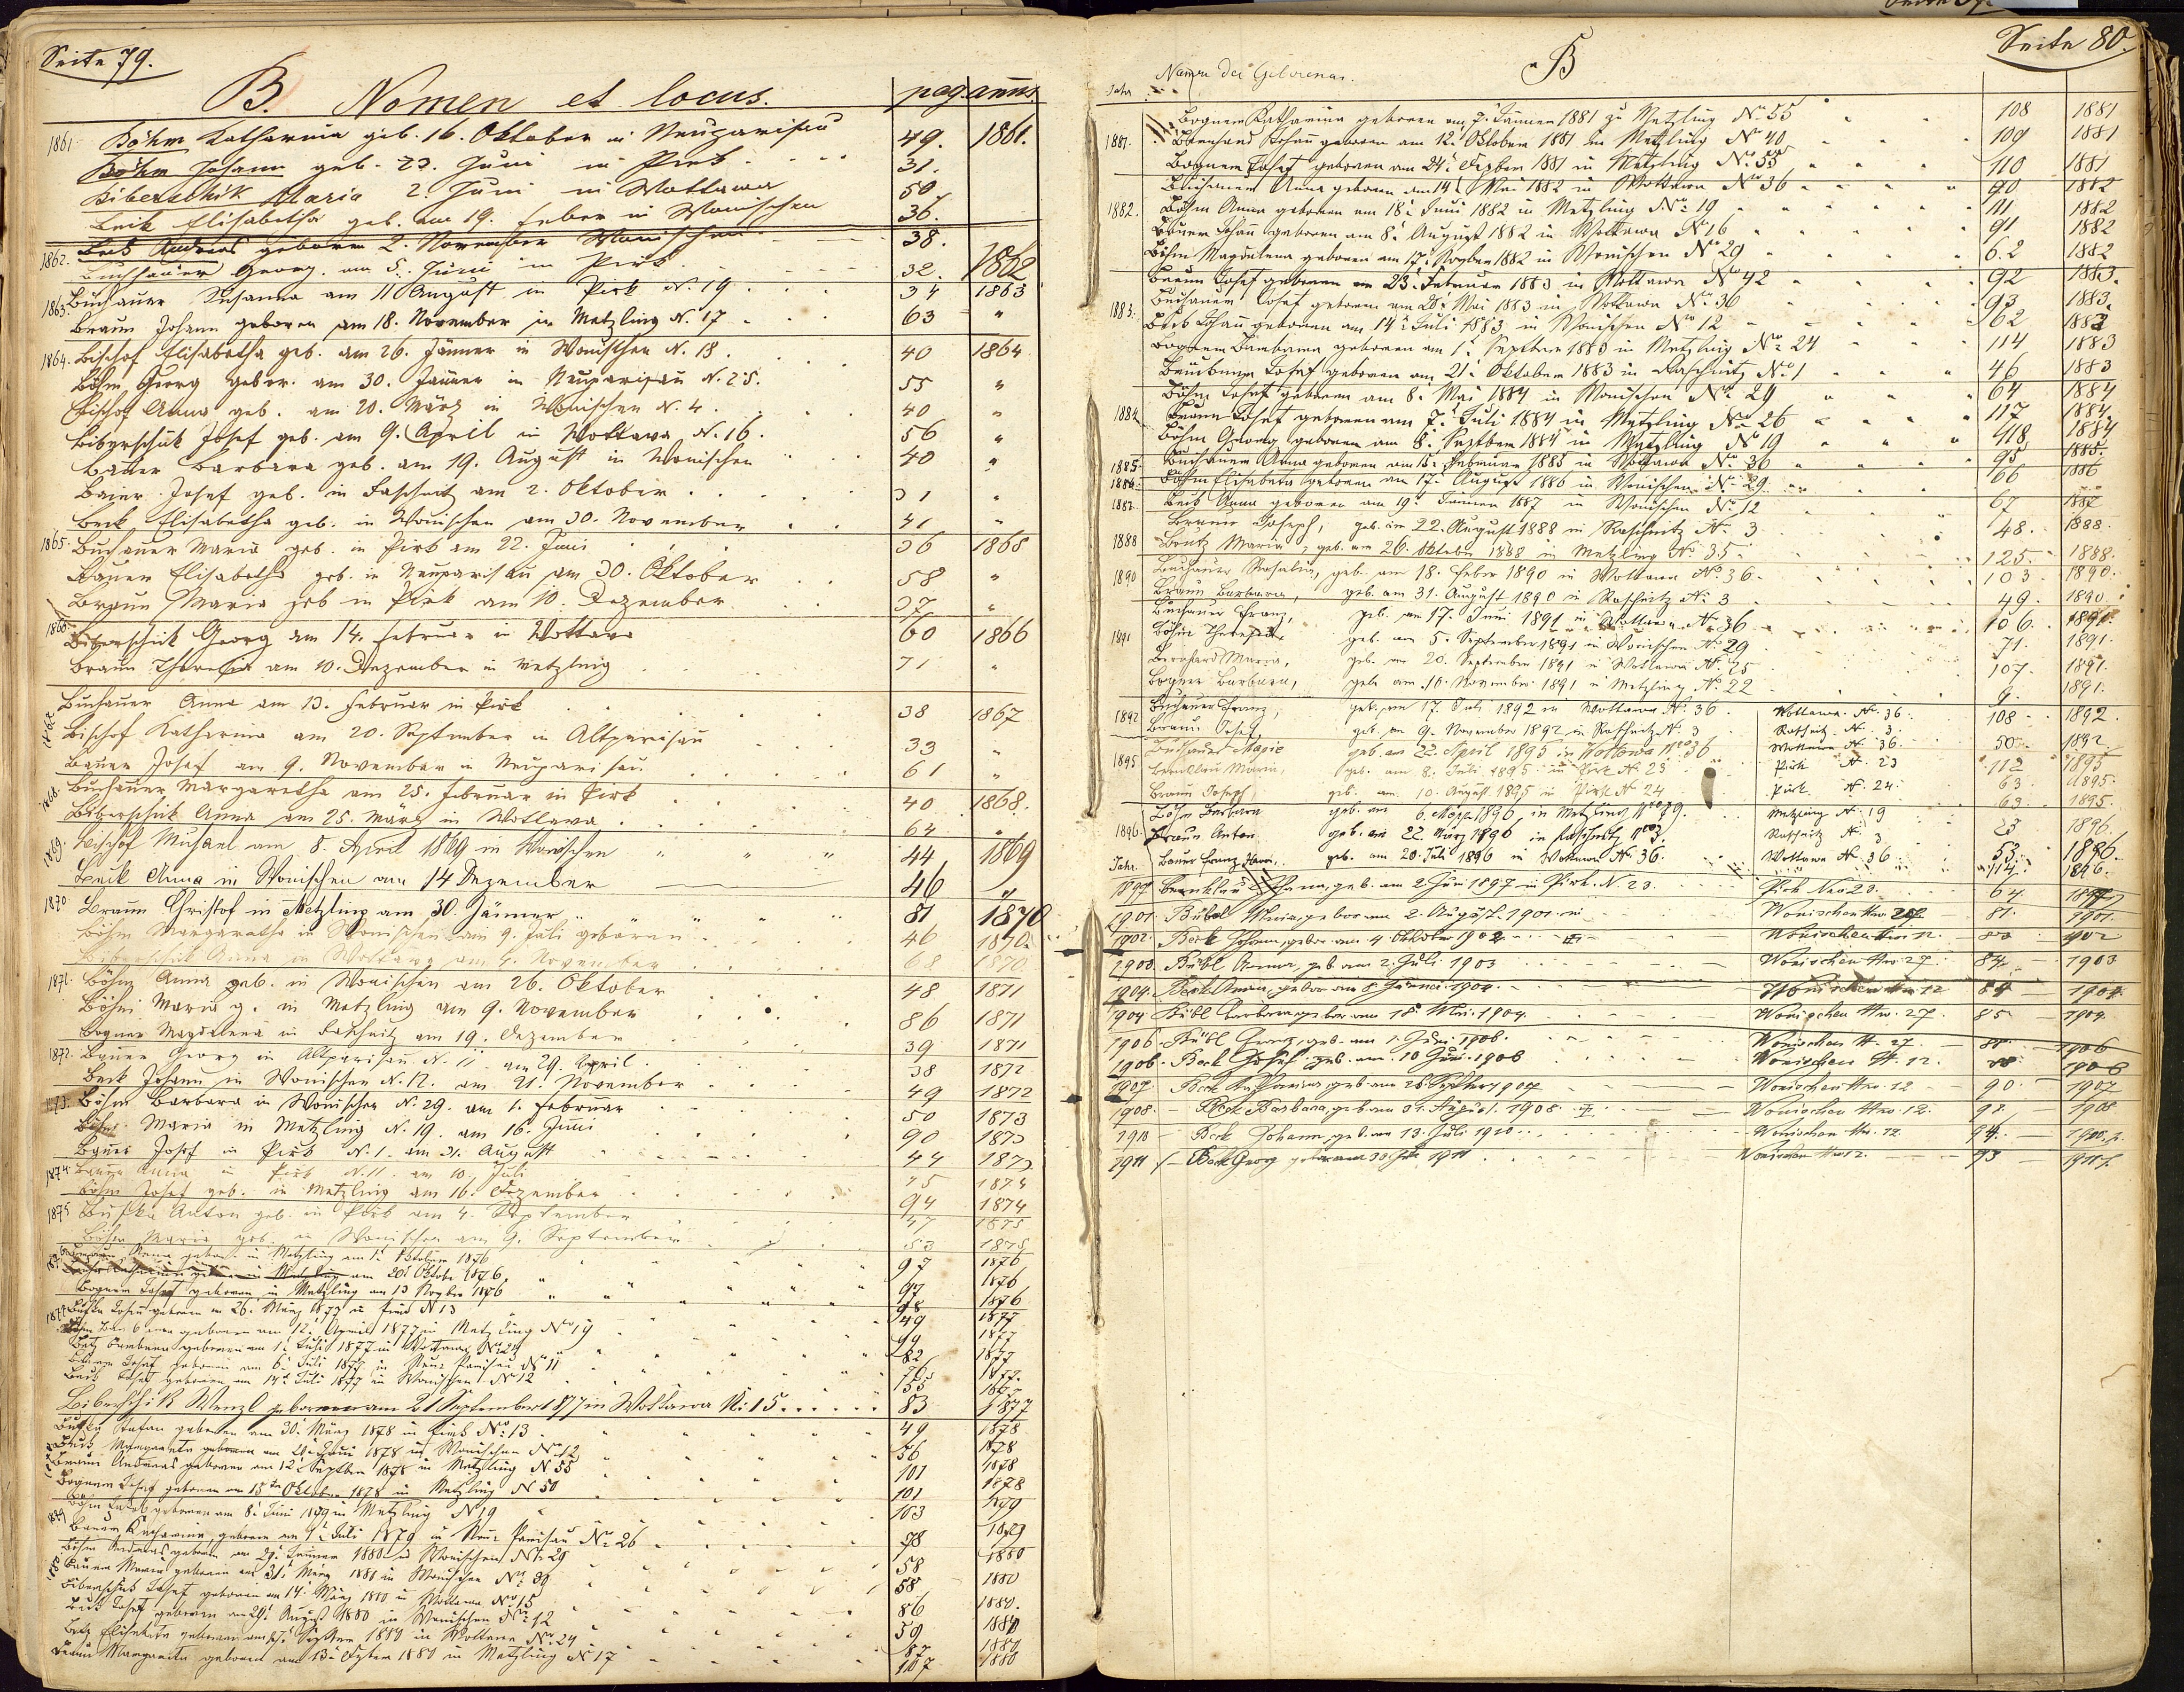 Seite 79.
B. Nomen et locus. pag. annus
1861. Böhm Katharina geb. 16. Oktober in Neuparisau 49. 1861.
Böhm Johann geb. 23. Juni in Pirk 31.
Biberschik Maria 2. Juni in Wottawa 50
Beck Elisabetha geb. am 19. Feber in Wonischen 36.
1862. Beck Andreas geboren 2. November Wonischen 38.
Buchhauer Georg. am 5. Juni in Pirk 32. 1862
1863. Buchauer Susanna am 11 August in Pirk N. 19 34 1863
Braun Johann geboren am 18. November in Metzling N. 17 63 "
1864. Bischof Elisabetha geb. am 26. Jänner in Wonischen N. 18. 40 1864
Böhm Georg gebor. am 30. Jänner in Neuparisau N. 25. 55 "
Bischof Anna geb. am 20. März in Wonischen N. 4. 40 "
Biberschik Josef geb. am 9. April in Wottawa N. 16. 56 "
Bauer Barbara geb. am 19. August in Wonischen 40 "
Baier Josef geb. in Raschnitz am 2. Oktober 31 "
Beck Elisabetha geb. in Wonischen am 30. November 41 "
1865. Buchauer Maria geb. in Pirk am 22. Juni 36 1865
Bauer Elisabetha geb. in Neuparisau am 30. Oktober 58 "
Braun Maria geb in Pirk am 10. Dezember 37 "
1866. Biberschik Georg am 14. Februar in Wottawa 60 1866
Braun Theresia am 10. Dezember in Metzling 71 "
1867 Buchauer Anna am 13. Februar in Pirk 38 1867
Bischof Katharina am 20. September in Altparisau 33 "
Bauer Josef am 9. November in Neuparisau 61 "
1868. Buchauer Margaretha am 25. Februar in Pirk 40 1868.
Biberschik Anna am 25. März in Wottawa 64 "
1869. Bischof Michael am 8. April 1869 in Wonischen 44 1869
Beck Anna in Wonischen am 14 Dezember 46 "
1870. Braun Christof in Metzling am 30. Jänner 81 1870
Böhm Margaretha in Wonischen am 9. Juli geboren 46 1870
Biberschik Anna in Wottawa am 4. November 68 1870
1871. Böhm Anna geb. in Wonischen am 26. Oktober 48 1871
Böhm Maria g. in Metzling am 9. November 86 1871
Bogner Magdalena in Raschnitz am 19. Dezember 39 1871
1872. Bauer Georg in Altparisau N. 11 am 29. April 38 1872
Beck Johann in Wonischen N. 12. am 21. November 49 1872
Böhm Barbara in Wonischen N. 29. am 1. Februar 50 1873
Böhm Maria in Metzling N. 19. am 16. Juni 90 1873
Bauer Josef in Pirk N. 1. am 31. August 44 1873
1874. Bauer Anna in Pirk N. 11. am 10. Juli 45 1874
Böhm Josef geb. in Metzling am 16. Dezember 94 1874
1875 Buschka Anton geb. in Pirk am 4. September 47 1875
Böhm Maria geb. in Wonischen am 9. September 53 1875
Anna geboren in Metzling am 1. Oktober 1876 97 1876
geboren in Metzling am 20. Oktober 1876 97 1876
Bogner Josef geboren in Metzling am 13 Novbr 1876 98 1876
1877 geboren am 26. März 1877 in Pirk N 13 49 1877
Böhm Barbara geboren am 12. April 1877 in Metzling No 19 99 1877
Betz Barbara geboren am 1. Juli 1877 in Wottawa No 24 82 1877
Bauer Josef geboren am 6. Juli 1877 in Neu-Parisau No 11 76 1877.
Beck Josef geboren am 14. Juli 1877 in Wonischen No 12 55 1877
Biberschik Wenzl geboren am 21 September 1877 in Wottawa N: 15 83 1877
Stefan geboren am 30. März 1878 in Pirk No 13 49 1878
Beck Margareta geboren am 1878 in Wonischen No 12 56 1878
Braun Andreas geboren am 12. Septber 1878 in Metzling N 55 101 1878
Bogner Josef geboren am 15ten Oktober 1878 in Metzling N 50 101 1878
1879 Böhm Jakob geboren am 8. Juni 1879 in Metzling No 19 103 1879
Bauer Katharina geboren am 9. Juli 1879 in Neu-Parisau No 26 78 1879
Böhm Andreas geboren am 29. Jänner 1880 in Wonischen No 29 58 1880
Bauer Maria geboren am 31. März in Wonischen No 30 58 1880
Biberschik Josef geboren am 14. März 1880 in Wottawa No 15 86 1880.
Beck Josef geboren am 29. August 1880 in Wonischen No 12 59 1880
Betz Elisabeta geboren am Septber 1880 in Wottawa No 24 87 1880
Braun Margareta geboren am 13. 1880 in Metzling No 17 107 1880
Seite 80.
B
Jahr Namen der Geborenen.
Bogner Katharina geboren am 7. Jänner 1881 zu Metzling No 55 108 1881
1881. Bernhard Johann geboren am 12. Oktober 1881 in Metzling No 40 109 1881
Bogner Josef geboren am 24. Dezber 1881 in Metzling No 55 110 1881
Buchauer Anna geboren am 14. Mai 1882 in Wottawa No 36 90 1882
1882. Böhm Anna geboren am 18. Juni 1882 in Metzling No 19 111 1882
Bauer Johann geboren am 8. August 1882 in Wottawa No 16 91 1882
Böhm Magdalena geboren am 17. Novber 1882 in Wonischen No 29 62 1882
Braun Josef geboren am 23. Februar 1883 in Wottawa No 42 92 1883.
Buchauer Josef geboren am 28. Mai 1883 in Wottawa No 36 93 1883.
1883. Beck Johann geboren am 14. Juli 1883 in Wonischen No 12 62 1883
Bogner Barbara geboren am 1. Septber 1883 in Metzling No 24 114 1883
Josef geboren am 21. Oktober 1883 in Raschnitz No 1 46 1883
Böhm Josef geboren am 8. Mai 1884 in Wonischen No 29 64 1884
1884 Braun Josef geboren am 7. Juli 1884 in Metzling No 26 117 1884.
Böhm Georg geboren am 8. Septber 1884 in Metzling No 19 118 1884
1885. Buchauer Anna geboren am 15. Februar 1885 in Wottawa No 36 95 1885.
1886. Böhm Elisabeta geboren am 17. August 1886 in Wonischen No 29 66 1886
1887. Beck Anna geboren am 19. Jänner 1887 in Wonischen No 12 67 1887
Braun Joseph, geb. am 22. August 1888 in Raschnitz N. 3 48. 1888.
1888 Maria, geb. am 26. Oktober 1888 in Metzling No 35 125. 1888.
1890 Buchauer Rosalia, geb. am 18. Feber 1890 in Wottawa No 36. 103 1890.
Braun Barbara, geb. am 31. August 1890 in Raschnitz N. 3 49. 1890.
Buchauer Franz, geb. am 17. Juni 1891 in Wottawa N. 36 106. 1891.
1891 Böhm Theresia geb. am 5. September 1891 in Wonischen No 29 71. 1891.
Bernhard Maria, geb. am 20. September 1891 in Wottawa N. 25 107. 1891.
Bogner Barbara, geb. am 16. November 1891 in Metzling N. 22 9. 1891.
1892 Buchauer Franz, geb. am 17. Juli 1892 in Wottawa N. 36 Wottawa N. 36 108 1892.
Braun Josef, geb. am 9. November 1892 in Raschnitz N. 3 Raschnitz N. 3. 50 1892
1895 Buchauer Marie geb. am 22. April 1895 in Wottawa Nro 36 Wottawa N. 36. 112 1895
Maria, geb. am 8. Juli 1895 in Pirk N. 23 Pirk N. 23 63 1895.
Braun Joseph geb. am 10. August 1895 in Pirk N 24 Pirk N. 24. 63. 1895.
Böhm Barbara geb. am 6. März 1896, in Metzling Nro 19. Metzling N. 19 23 1896.
1896. Braun Anton geb. am 22 März 1896 in Raschnitz Nro 3. Raschnitz N. 3 53. 1896.
Jahr. Bauer Franz Xaver, geb. am 20. Juli 1896 in Wottawa N. 36. Wottawa N. 36 114. 1896.
1897 Johann, geb. am 2. Juni 1897 in Pirk. N. 23. Pirk Nro 23. 64 1897
1901. Bübl Maria, gebor am 2. August 1901. in Wonischen Nro 27. 81. 1901.
1902. Beck Johann, gebor am 4 Oktober 1902 Wonischen Nro 12. 1902
1903. Bübl Anna, geb am 2. Juli 1903 Wonischen Nro 27. 84. 1903
1904. Beck gebor am 8. Jänner 1904. Wonischen Nro 12 84 1904.
1904 Bübl Barbara gebor am 18. Mai. 1904. Wonischen Nro. 27. 85 1904.
1906. Bübl Georg, geb. am 1. Juni 1906. Wonischen N. 27. 1906
1906. Beck Josef. geb. am. 10 Juni. 1906 Wonischen N. 12. 88. 1906
1907. Beck Katharina, geb. am 28. Septber 1907 Wonischen Nro. 12 90. 1907
1908. Beck Barbara, geb. am 31. August. 1908. Wonischen Nro. 12. 92. 1908
1910 Beck Johann, geb. am 13. Juli 1910. Wonischen Nro. 12 94. 1910.
1911 Beck Georg geboren am 30. 1911 Wonischen Nro 12. 93 1911.